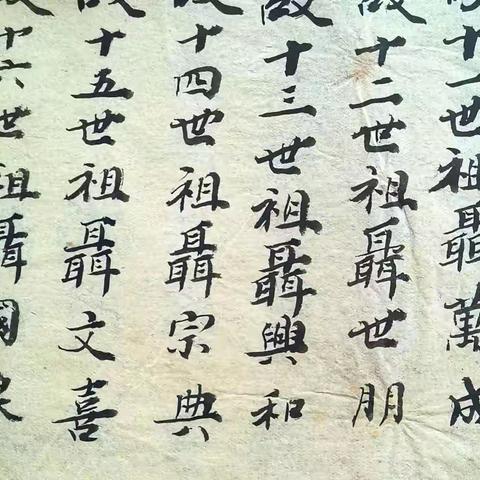 故十一世祖聶萬成
故十二世祖聶世朋
故十三世祖聶興和
故十四世祖聶宗典
故十五世祖聶文喜
十六世祖聶國